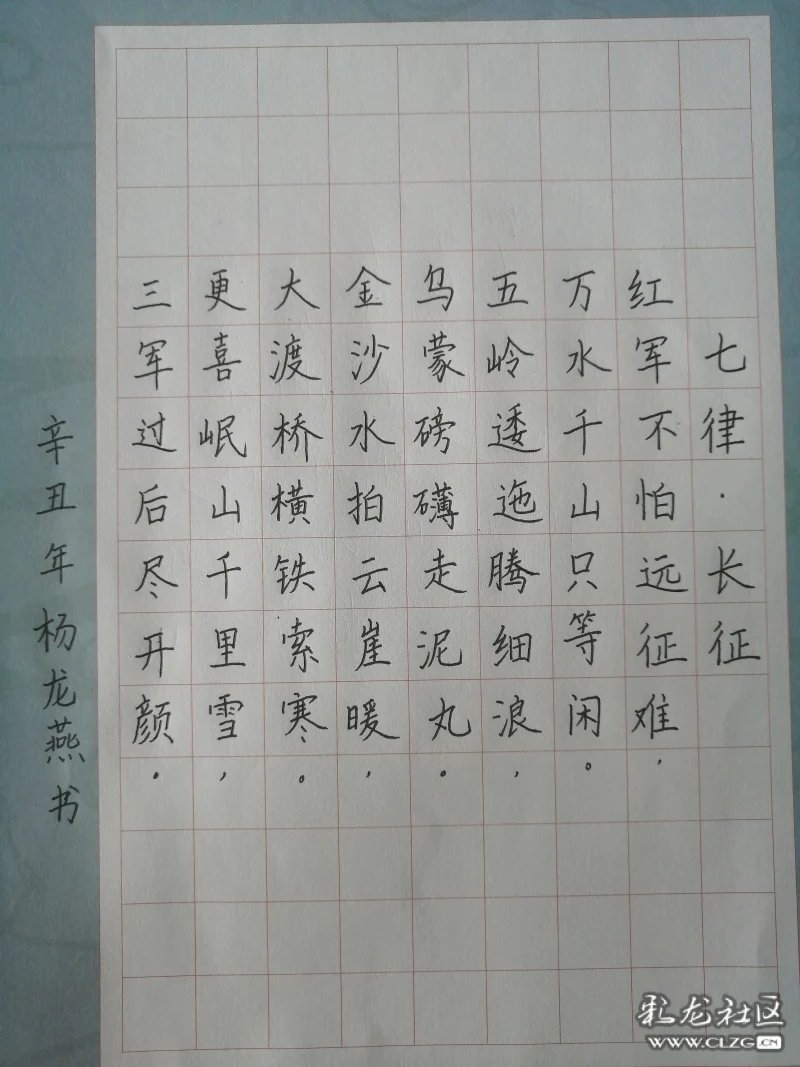 七律·长征
红军不怕远征难，
万水千山只等闲。
五岭逶迤腾细浪，
乌蒙磅礴走泥丸。
金沙水拍云崖暖，
大渡桥横铁索寒。
更喜岷山千里雪，
三军过后尽开颜。
辛丑年杨龙燕书
彩龙社区
WWW.CLZG.CN